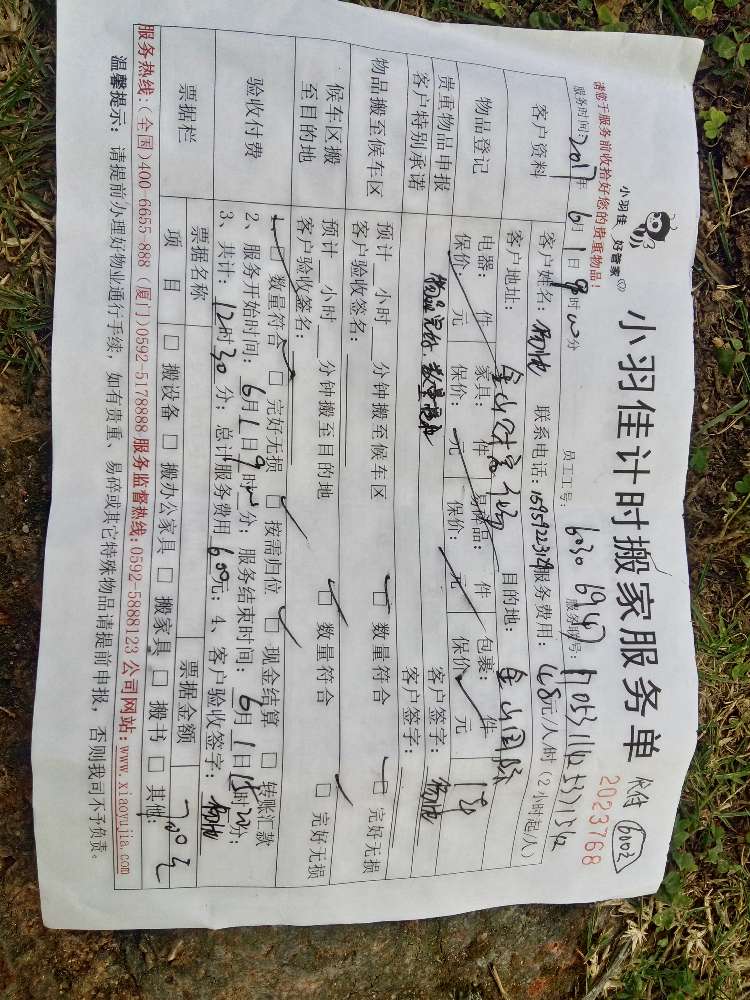 小羽佳计时搬家服务单
2023768
小羽佳 好管家
请您于服务前收拾好您的贵重物品!
员工工号: 6030 6947
服务时间: 2017年 6月 1日 9时 00分
客户资料 客户姓名: 联系电话: 服务费用: 元/人/时(2小时起/人)
客户地址: 金山财富 目的地: 金山国际
物品登记 电器: 件 家具: 件 易碎品: 件 包裹: 件
保价: 元 保价: 元 保价: 元 保价: 元
贵重物品申报 客户签字:
客户特别承诺 物品完好 客户签字:
物品搬至候车区 预计 小时 分钟搬至候车区 □ 数量符合 □ 完好无损
客户验收签名:
候车区搬至目的地 预计 小时 分钟搬至目的地 □ 数量符合 □ 完好无损
客户验收签名:
验收付费 1、□ 数量符合 □ 完好无损 □ 按需归位 □ 现金结算 □ 转账汇款
2、服务开始时间: 6月1日9时00分; 服务结束时间: 6月1日15时20分;
3、共计: 12时30分; 总计服务费用 600元; 4、客户验收签字:
票据栏 票据名称 票据金额
项 目 □ 搬设备 □ 搬办公家具 □ 搬家具 □ 搬书 □ 其他:
服务热线:(全国)400-6655-888 (厦门)0592-5178888 服务监督热线:0592-5888123 公司网站:www.xiaoyujia.com
温馨提示: 请提前办理好物业通行手续,如有贵重、易碎或其它特殊物品请提前申报,否则我司不予负责。